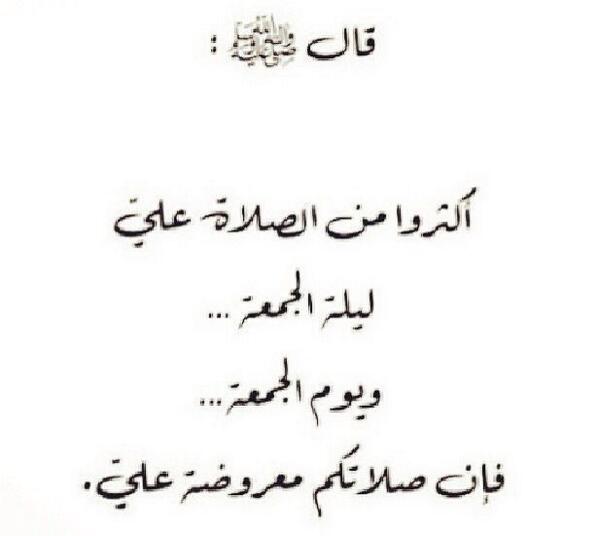 قال ﷺ :
أكثروا من الصلاة علي
ليلة الجمعة ...
ويوم الجمعة ...
فإن صلاتكم معروضة علي .